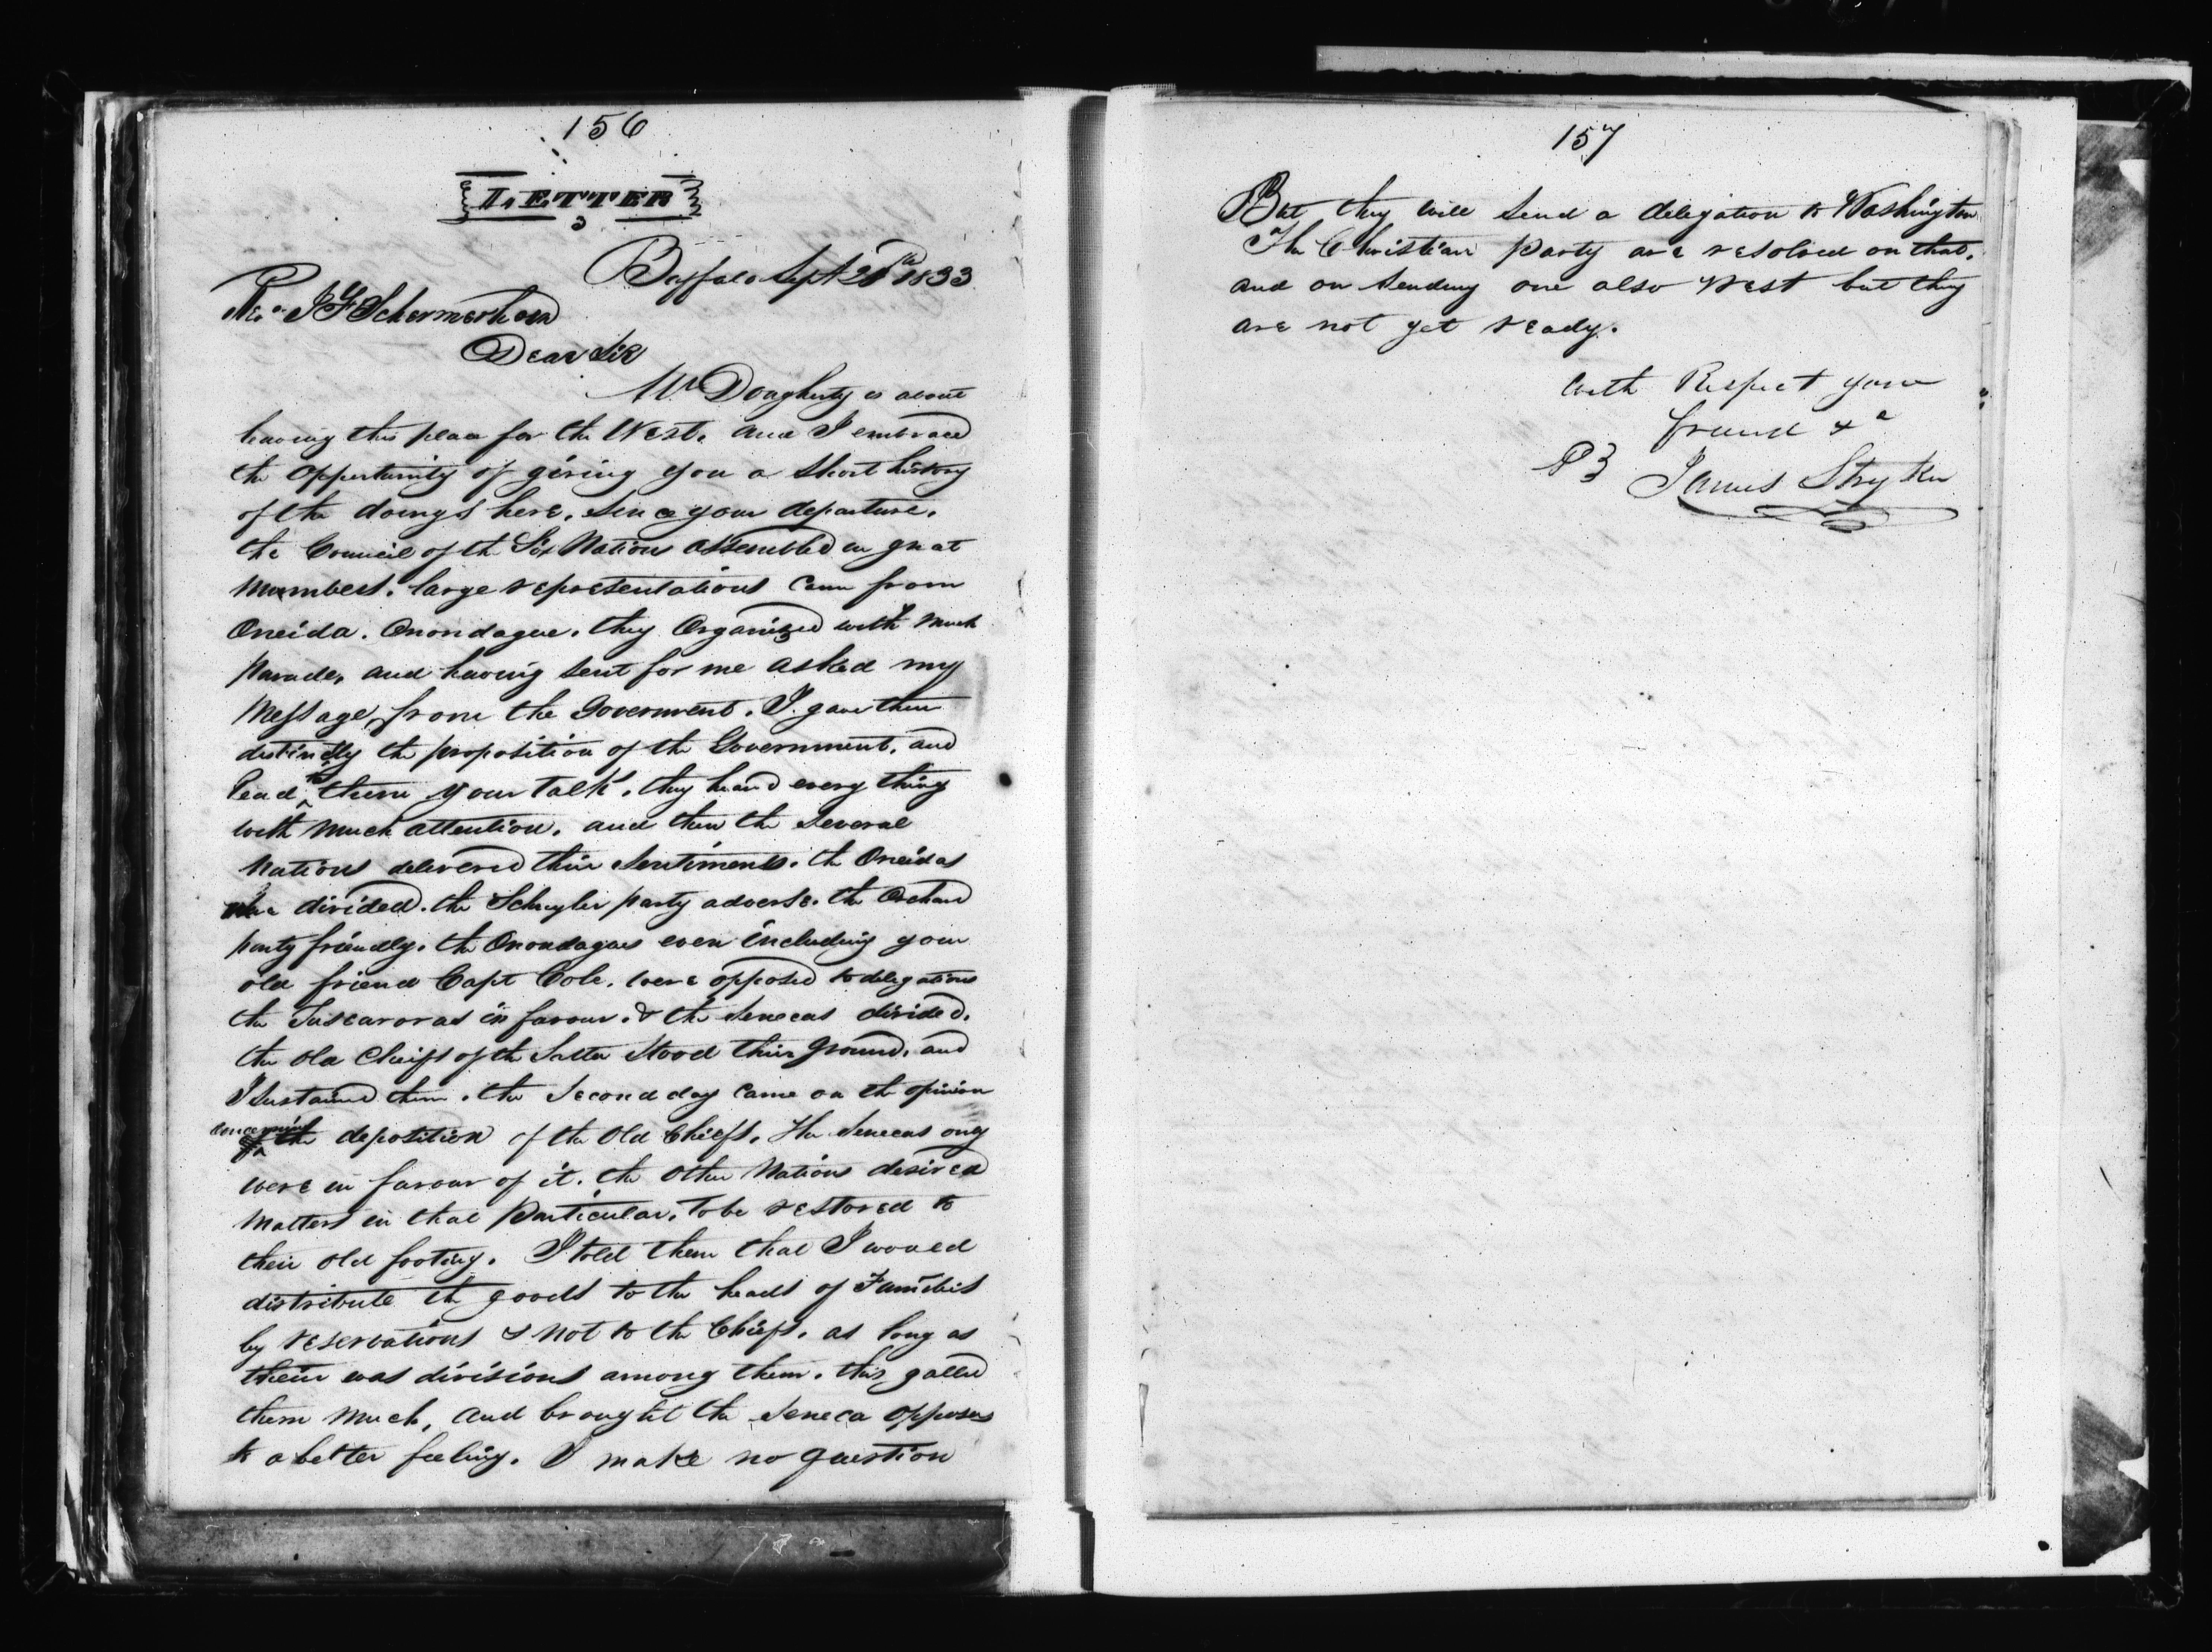 156
LETTER
Buffalo Sept 28th 1833
Rev. J F Schermerhorn
Dear Sir
Mr Dougherty is about
leaving this place for the West. and I embrace
the oppertunity of giving you a short history
of the doings here, since your departure.
the Council of the Six Nations assembled in great
numbers. large representations came from
Oneida. Onondague. they Organized with much
parade, and having sent for me asked my
Message, from the Goverment. I gave them
distinctly the proposition of the Government, and
read to them your talk. they heard every thing
with much attention. and then the several
Nations delivered their sentiments. the Oneidas
divided. the Schuyler party adverse. the Orchard
party friendly. the Onondagas even including your
old friend Capt Cole. were opposed to delegations
the Tuscaroras in favour. & the Senecas divided.
the old Cheifs of the Latter stood their ground, and
I sustained them. the second day came on the opinion
concerning the deposition of the Old Chiefs. the Senecas ony
were in favour of it. the other Nations desired
matters in that particular, to be restored to
their old footing. I told them that I would
distribute the goods to the heads of Families
by reservations & not to the Chiefs. as long as
their was divisions among them. this galled
them much, and brought the Seneca opposers
to a better feeling. I make no question
157
But they will send a delegation to Washington
The Christian party are resolved on that.
and on sending one also West but they
are not yet ready.
With Respect your
friend &c
James Stryker